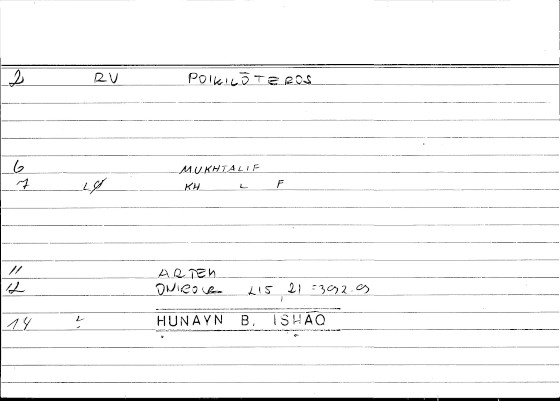 2 RV POIKILŌTEROS
6 MUKHTALIF
7 LØ KH L F
11 ARTEM
12 ONIROCR L15, 21 = 392.9
14 L HUNAYN B. ISHĀQ